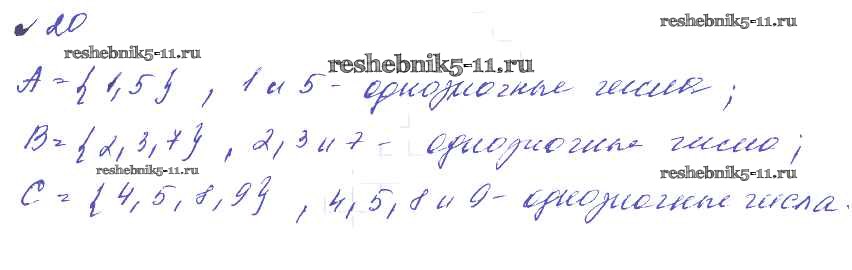 № 20
reshebnik5-11.ru
reshebnik5-11.ru
reshebnik5-11.ru
A = {1,5}, 1 и 5 - однозначные числа;
B = {2,3,7}, 2,3 и 7 - однозначные числа;
reshebnik5-11.ru
reshebnik5-11.ru
C = {4,5,8,9}, 4,5,8 и 9 - однозначные числа.